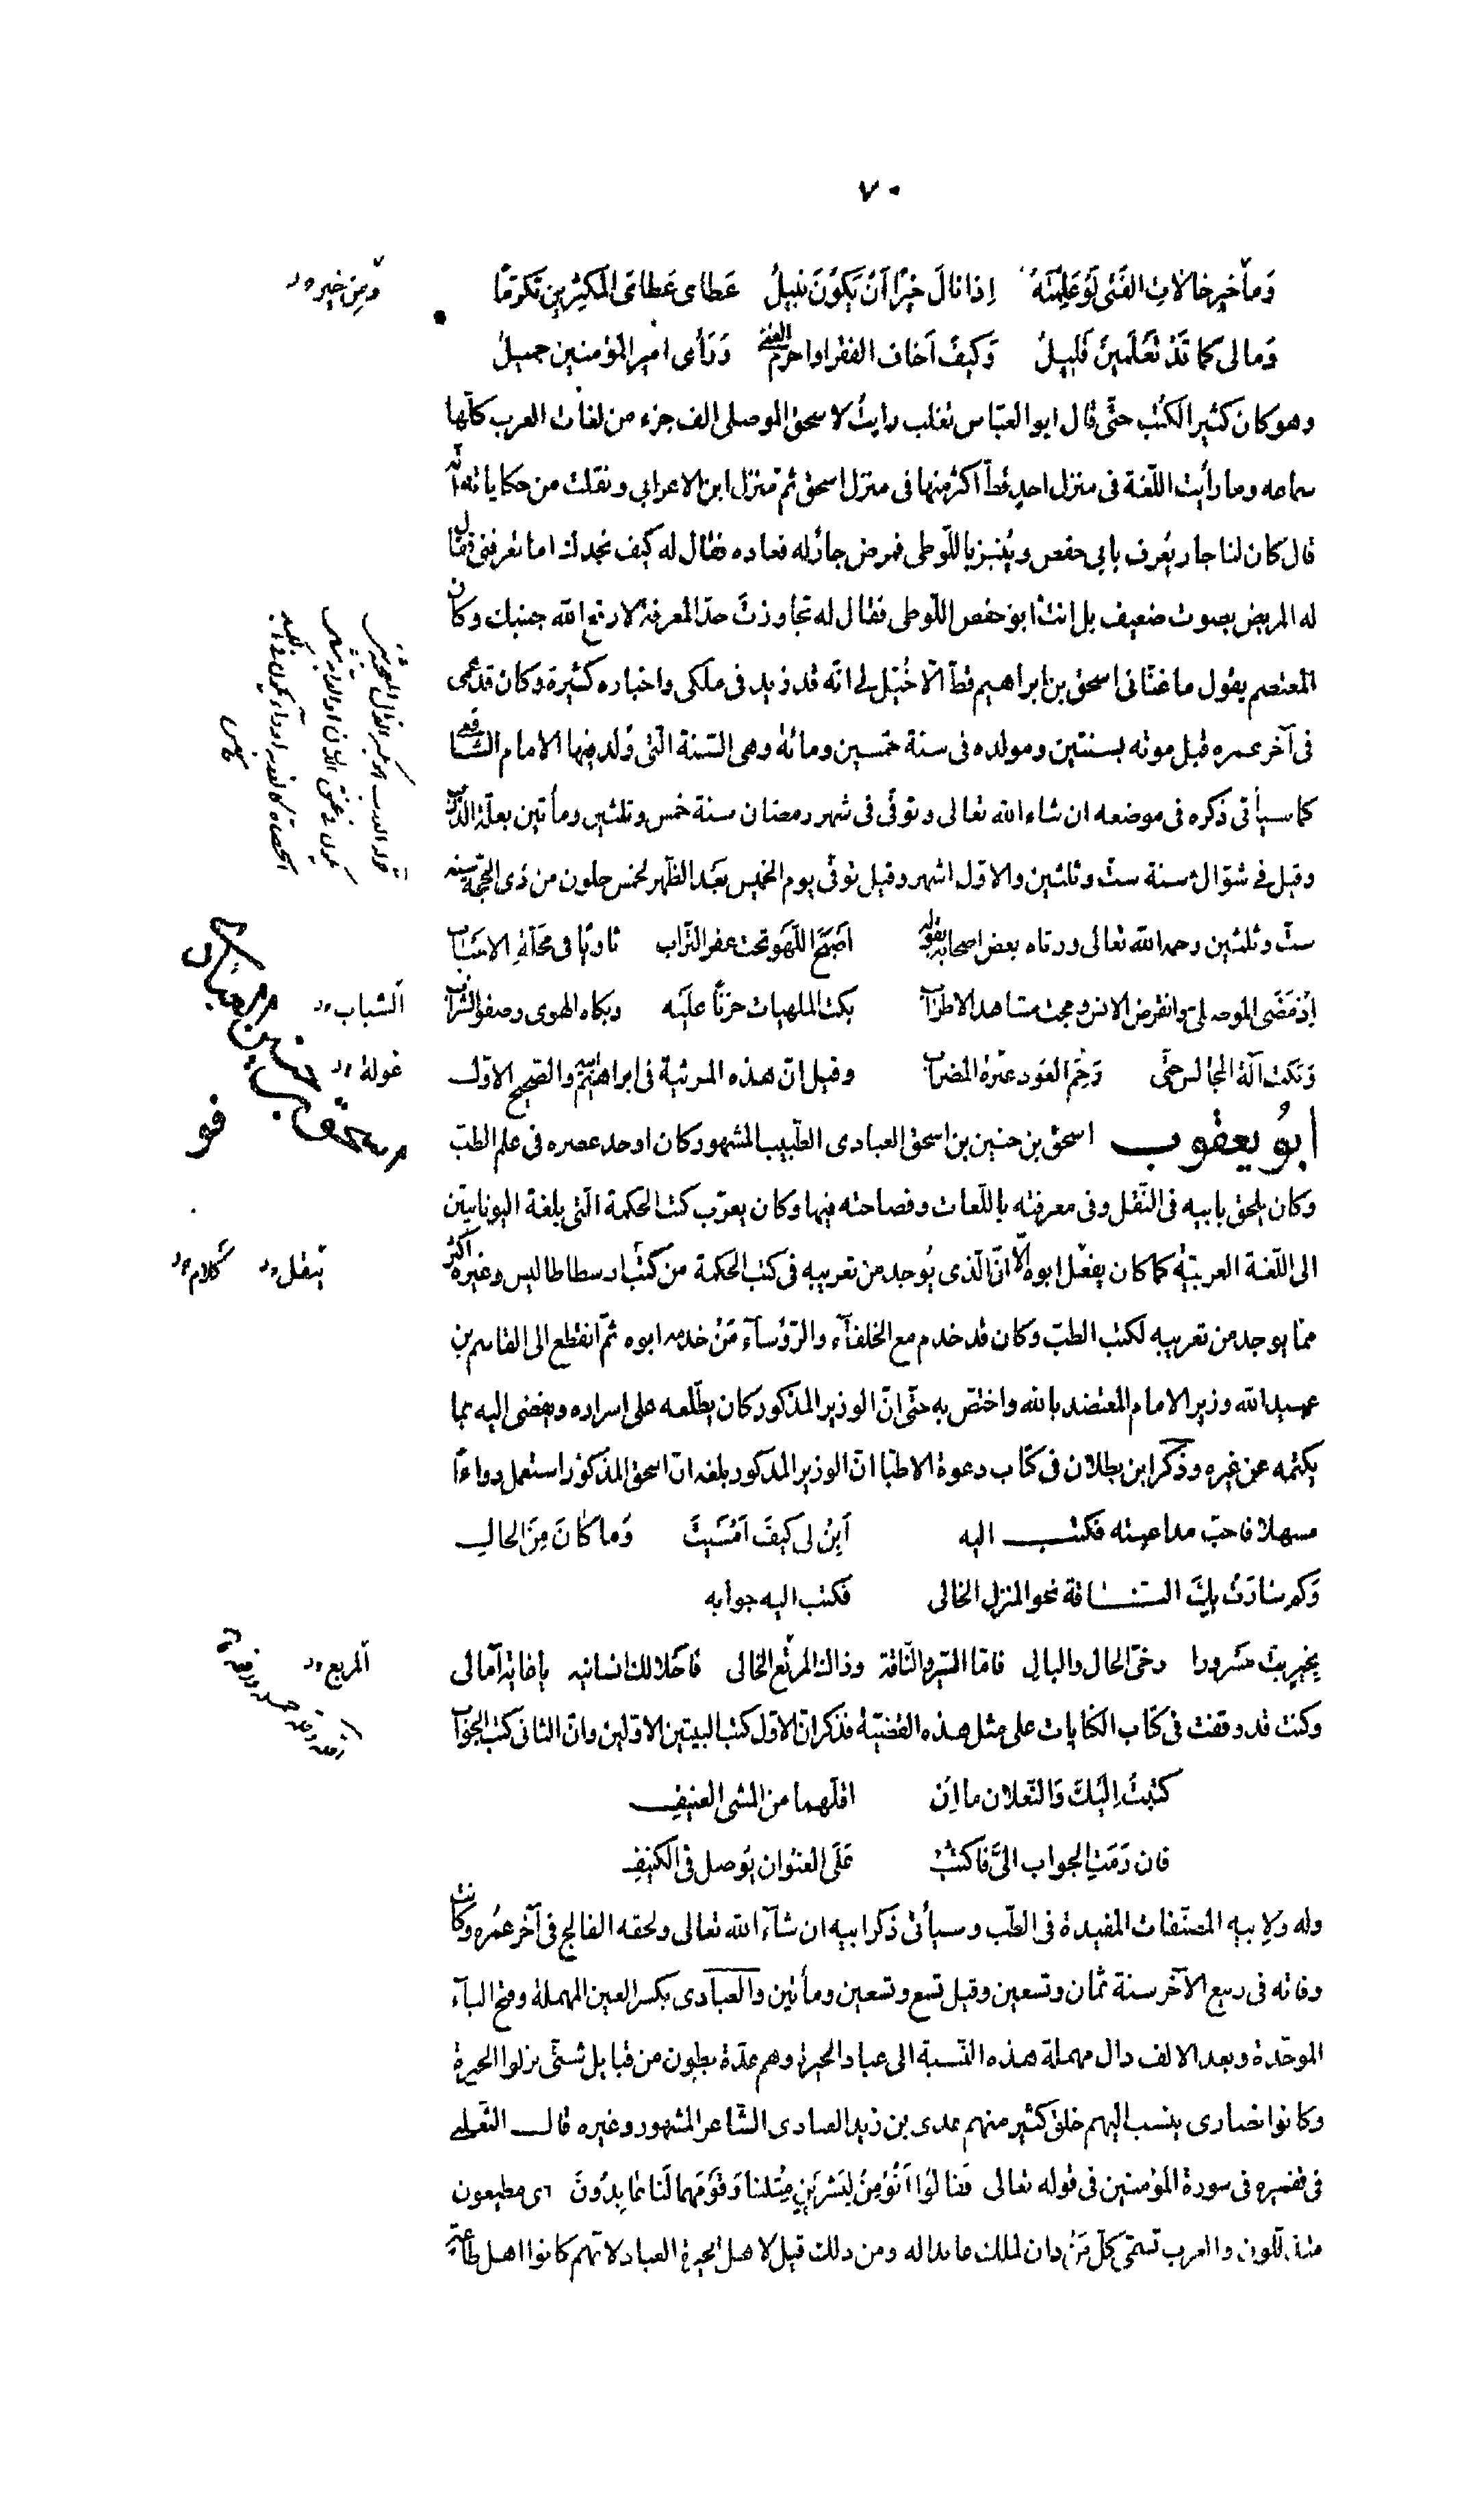 ٧٠
وَمأ خير خالات الفَتى لَوْ عَلِمْتَهُ إذا نالَ خيرًا أنْ يَكوُنَ ينيلُ عَطاى عَطاءَ المكثِرينِ تَكرّمًا
وَمالى كما قَدْ تَعْلَمينَ قليلُ وَكيفَ اَخاف الفقر اوا حرم الغنى وَرَأى امير المؤمنين جميلُ
وهو كان كثير الكتُب حتّى قال ابو العبّاس ثعلب رايت لاسحق الموصلى الف جزء من لغات العرب كلّها
سماعه وما رأيت اللّغة فى منزل احدٍ قطّ اكثر منها فى منزل اسحق ثمّ منزل ابن الاعرابى ونقلت من حكاياته انّه
قال كان لنا جار يُعرف بابى حفص ويُنبز باللّوطى فمرض جارُله فعاده فقال له كيف تجدك اما تعرفنى فقال
له المريض بصوت ضعيف بل انت ابو حفص اللّوطى فقال له تجاوزتَ حدّ المعرفة لا رفع الله جنبك وكان
المعتصم يقول ما غنّانى اسحق بن ابراهيم قطّ الّا خُيّل لى انّه قد زيد فى ملكى واخباره كثيرة وكان قد عمى
فى آخر عمره قبل موته بسنتين ومولده فى سنة خمسين ومائة وهى السّنة الّتى وُلد فيها الامام الشّافعى
كما سيأتى ذكره فى موضعه ان شاء الله تعالى وتوفّى فى شهر رمضان سنة خمس وثلثين ومأتين بعلّة الذّرب
وقيل فى شوّال سنة ستّ وثلثين والاوّل اشهر وقيل توفّى يوم الخميس بعد الظّهر لخمس خلون من ذى الحجّة سنة
ستّ وثلثين رحمه الله تعالى ورثاه بعض اصحابه بقوله اَصبَحَ اللّهو تحت عفر التّراب ثاويًا فى محلّةِ الاحباب
إذ مَضَى الموصلىّ وانقرض الانس ومجت مشاهد الاطراب بكت الملهيات حزنًا عليَه وبكاه الهوى وصفو الشّراب
وَبَكت آلة المجالس حتّى رَحِمَ العُود عبْرة المضراب وقيل انّ هذه المرثية فى ابراهيم والصّحيح الاوّل
ابوُ يعقوب اسحق بن حنين بن اسحق العبادى الطّبيب المشهور كان اوحد عصره فى علم الطبّ
وكان يلحق بابيه فى النّقل وفى معرفته باللّغات وفصاحته فيها وكان يعرّب كتب الحكمة الّتى بلغة اليونانيّين
الى اللّغة العربيّة كما كان يفعل ابوه الّا انّ الّذى يُوجد من تعريبه فى كتب الحكمة من كتُب ارسطاطاليس وغيره اكثر
ممّا يوجد من تعريبه لكتب الطبّ وكان قد خدم مع الخلفآء والرّؤسآء مَنْ خدمه ابوه ثمّ انقطع الى القاسم بن
عبيد الله وزير الامام المعتضد بالله واختصّ به حتّى انّ الوزير المذكور كان يطّلعه على اسراره ويفضى اليه بما
يكتمه عن غيره وذكر ابن بطلان فى كتاب دعوة الاطبّا انّ الوزير المذكور بلغه انّ اسحق المذكور استعمل دواءًا
مسهلا فاحبّ مداعبته فكتب اليه أبِنْ لى كيفَ اَمْسَيتَ وَما كانَ مِنَ الحالِ
وَكم سارَتْ بِكَ النّاقة نحو المنزل الخالى فكتب اليه جوابه
بخير بتّ مسرورا رخىّ الحال والبال فامّا السّير والنّاقة وذاك المرتع الخالى فاجلالك انسانيه ياغاية آمالى
وكنت قد وقفت فى كتاب الكنايات على مثل هذه القضيّة فذكر انّ الاوّل كتب البيتين الاوّلين وانّ الثانى كتب الجواب
كتبتُ إليَكَ وَالنّعلان ما إن اقلّهما من المشى العنيفِ
فان رَمتَ الجواب الىَّ فاكتبْ عَلَى العنوان يوصل فى الكنيفِ
وله ولابيه المصنّفات المفيدة فى الطّب وسيأتى ذكر ابيه ان شآء الله تعالى ولحقه الفالج فى آخر عمره وكانت
وفاته فى ربيع الآخر سنة ثمان وتسعين وقيل تسع وتسعين ومأتين والعبادى بكسر العين المهملة وفتح البآء
الموحّدة وبعد الالف دال مهملة هذه النّسبة الى عباد الحيرة وهم عدّة بطون من قبايل شتّى نزلوا الحيرة
وكانوا نصارى ينسب اليهم خلق كثير منهم عدى بن زيد العبادى الشّاعر المشهور وغيره قال الثّعلبى
فى تفسيره فى سورة المؤمنين فى قوله تعالى فقالوُا اَنُؤمِنُ لِبَشَرَينِ مِثلنا وَقَومهما لَنا عابِدُونَ اى مطيعون
متذلّلون والعرب تسمّى كلّ مَنْ دان لملك عابدا له ومن ذلك قيل لاهل الحيرة العباد لانّهم كانوا اهل طاعة
ومِن خير
الشباب
غولة
اسحق بن حنين العبادى
ينقل
كلام
المربع